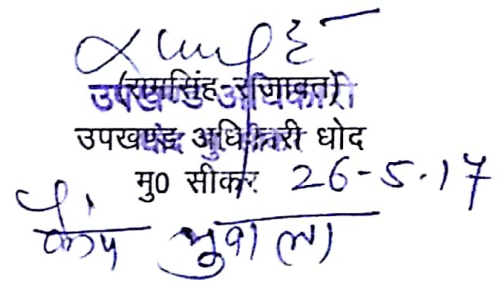 (रामसिंह राजावत)
उपखण्ड अधिकारी
उपखण्ड अधिकारी धोद
मु0 सीकर 26-5-17
कैंप भुवाला